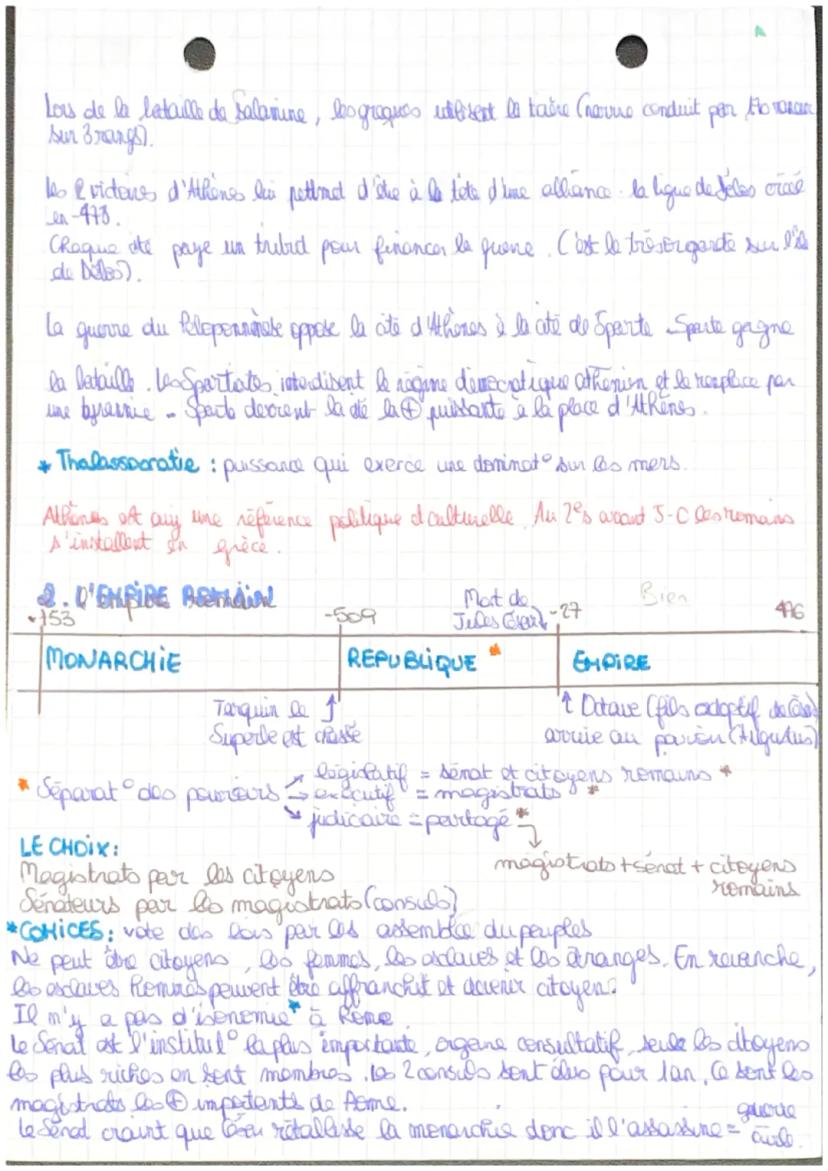 Lors de la bataille de Salamine, les greques utilisent la taire (navrue conduit par rameur
sur 3 rangs).
les 2 victoires d'Athènes lui pettmet d'être à la tête d'une alliance la ligue de Délos créé
en -478.
Chaque cité paye un tribut pour financer la guerre. (C'est le trésor gardé sur l'île
de Délos).
La guerre du Péloponnèse oppose la cité d'Athènes à la cité de Sparte. Sparte gagne
la bataille. Les Spartiates interdisent le régime démocratique athénien et le remplace par
une tyrannie - Sparte devient la cité la + puissante à la place d'Athènes.
* Thalassocratie : puissance qui exerce une dominat° sur les mers.
Athènes est une référence politique et culturelle. Au 2es avant J-C les romains
s'installent en grèce.
2. L'EMPIRE ROMAIN
-753 -509 Mort de Bien
Jules César -27 476
MONARCHIE REPUBLIQUE * EMPIRE
Tarquin le ↑ ↑ Octave (fils adoptif de César)
Superbe est chassé arrive au pouvoir (Augustus)
* Séparat° des pouvoirs → législatif = sénat et citoyens romains *
→ exécutif = magistrats *
↘ judicaire = partagé *
LE CHOIX : magistrats + sénat + citoyens
Magistrats par les citoyens romains
Sénateurs par les magistrats (consuls)
*COMICES : vote des lois par les assemblée du peuples
Ne peut être citoyens, les femmes, les esclaves et les étranges. En revanche,
les esclaves Romains peuvent être affranchit et devenir citoyen.
Il n'y a pas d'isonomie* à Rome
Le Sénat est l'institut° la plus importante, organe consultatif, seule les citoyens
les plus riches en sont membres. Les 2 consuls sont élus pour 1an, Ce sont les
magistrats les + importents de Rome.
Le Sénat craint que César rétablisse la monarchie donc il l'assassine = guerre
civile.